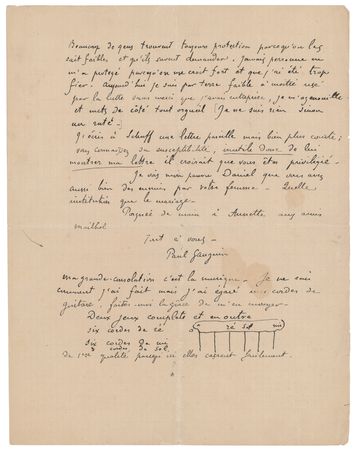 Beaucoup de gens trouvent toujours protection parcequ'on les
sait faibles et qu'ils savent demander. Jamais personne ne
m'a protégé parcequ'on me croit fort et que j'ai été trop
fier. Aujourd'hui je suis par terre faible à moitié usé
par la lutte sans merci que j'avais entreprise, je m'agenouille
et mets de côté tout orgueil. Je ne suis rien sinon
un raté.
J'écris à Schuff une lettre pareille mais bien plus
vous connaissez sa susceptibilité, inutile donc de lui
montrer ma lettre il croirait que vous êtes privilégié.
Je vois mon pauvre Daniel que vous avez
aussi bien des ennuis par votre femme. Quelle
institution que le mariage.
Poignée de main à Annette aux amis
Maillol
Tout à vous
Paul Gauguin
Ma grande consolation c'est la musique. Je ne sais
comment j'ai fait mais j'ai égaré mes cordes de
guitare, faites-moi la grâce de m'en envoyer
Deux jeux complets et en outre
six cordes de ré
ré sol mi
six cordes de mi
3 cordes de sol
de 1ère qualité parceque ici elles cassent facilement.